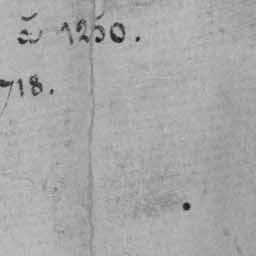 1250.
718.